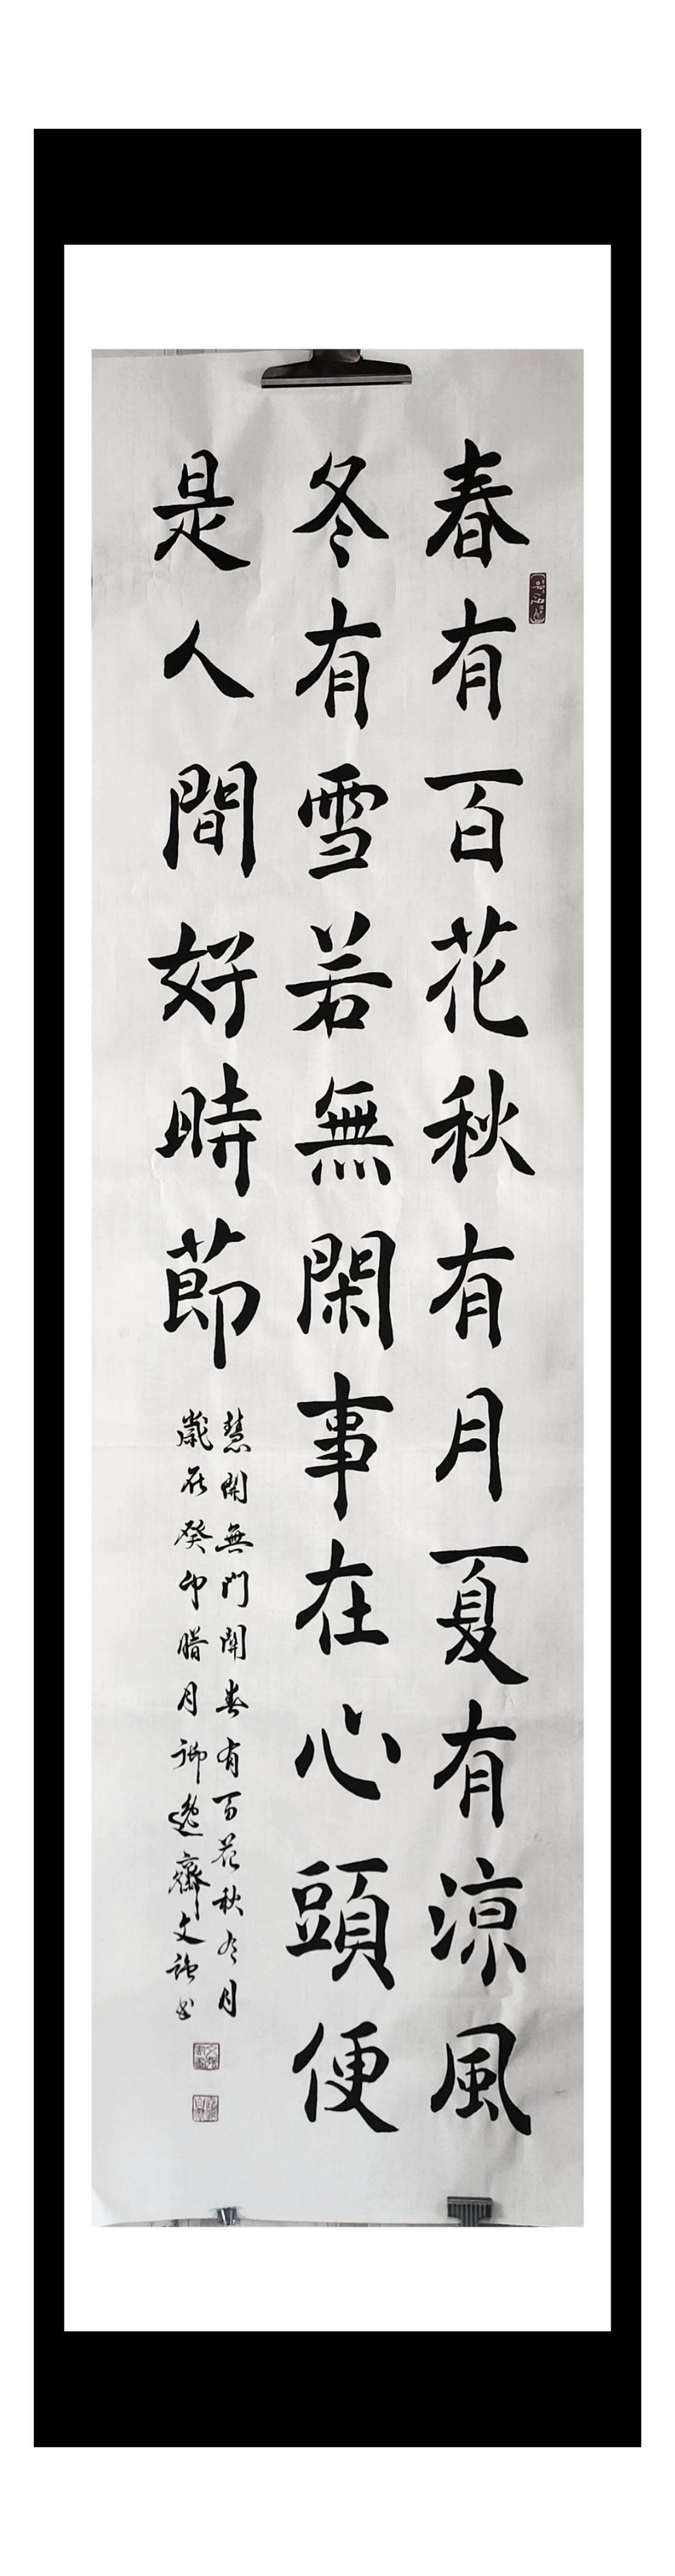 春有百花秋有月夏有涼風
冬有雪若無閑事在心頭便
是人間好時節
慧開無門關春有百花秋有月
歲在癸卯腊月御逸齋文強書